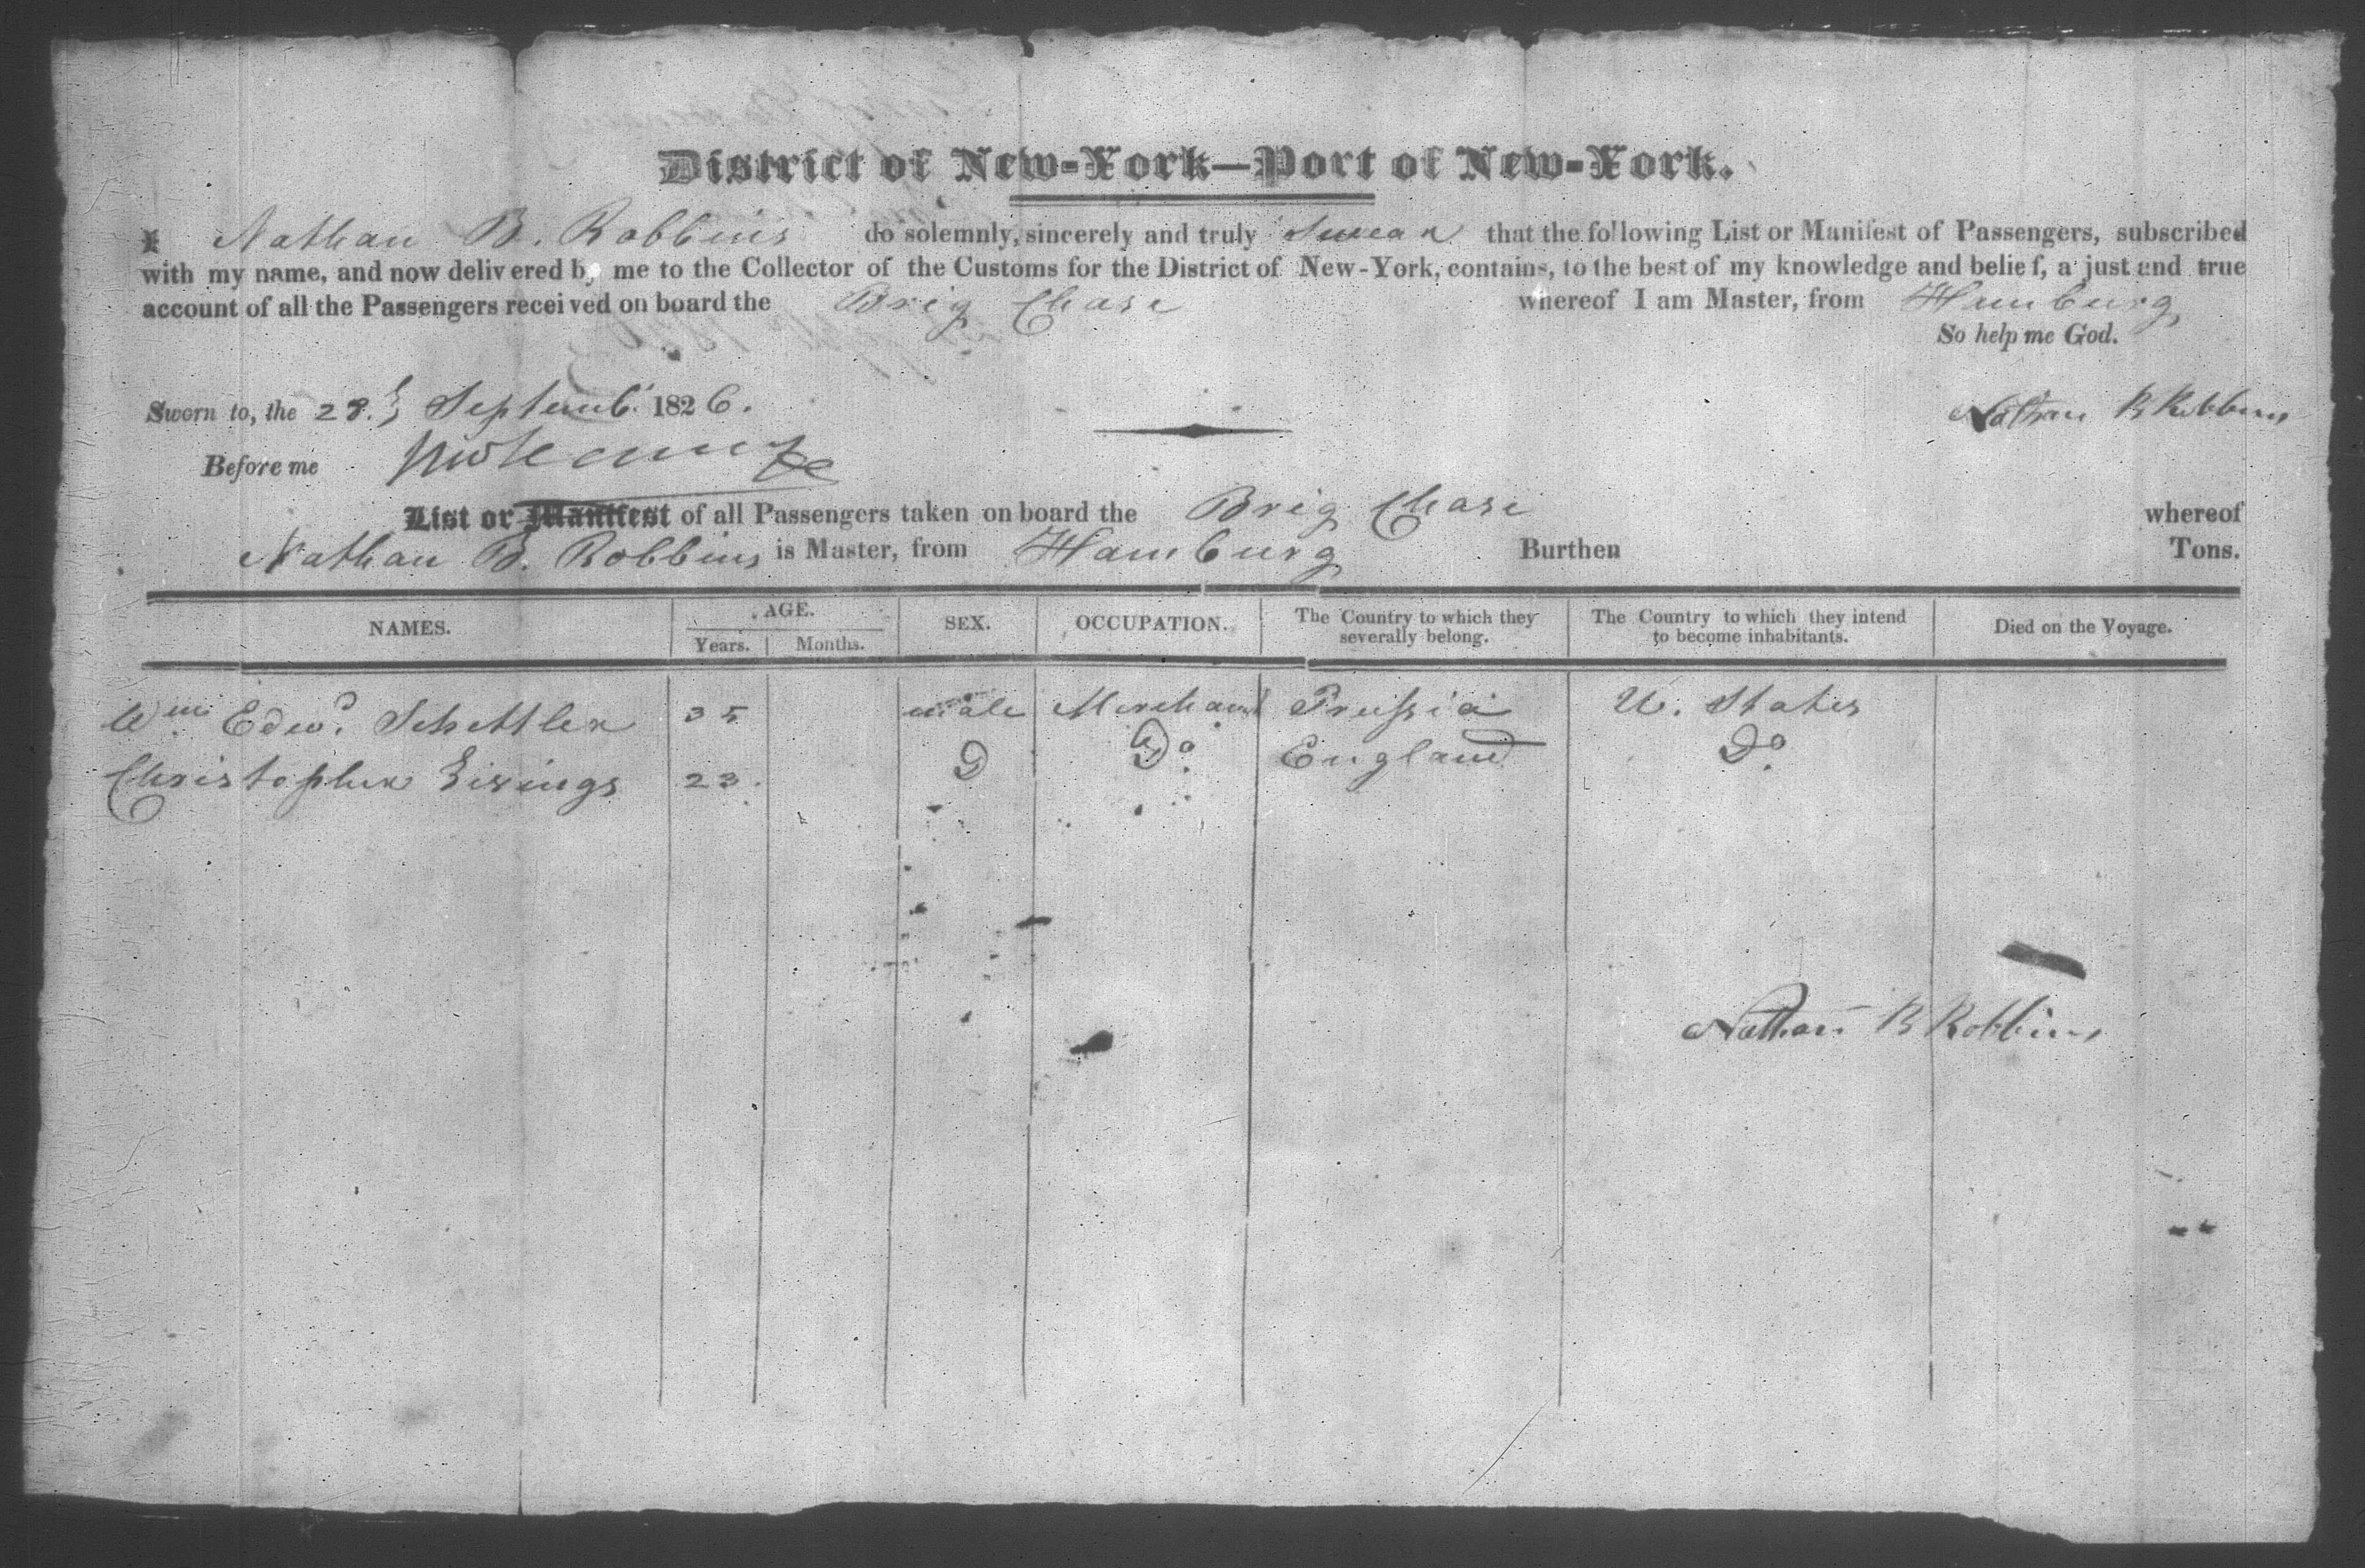 District of New-York—Port of New-York.
I Nathan B. Robbins do solemnly, sincerely and truly Swear that the following List or Manifest of Passengers, subscribed
with my name, and now delivered by me to the Collector of the Customs for the District of New-York, contains, to the best of my knowledge and belief, a just and true
account of all the Passengers received on board the Brig Chase whereof I am Master, from Hamburg
So help me God.
Sworn to, the 28. Septemb. 1826.
Nathan B Robbins
Before me
List or Manifest of all Passengers taken on board the Brig Chase whereof
Nathan B. Robbins is Master, from Hamburg Burthen Tons.
NAMES. AGE. SEX. OCCUPATION. The Country to which they severally belong. The Country to which they intend to become inhabitants. Died on the Voyage.
Years. Months.
Wm Edwd. Schettler 35 male Merchant Prussia U. States
Christopher 23. Do Do. England Do.
Nathan B Robbins